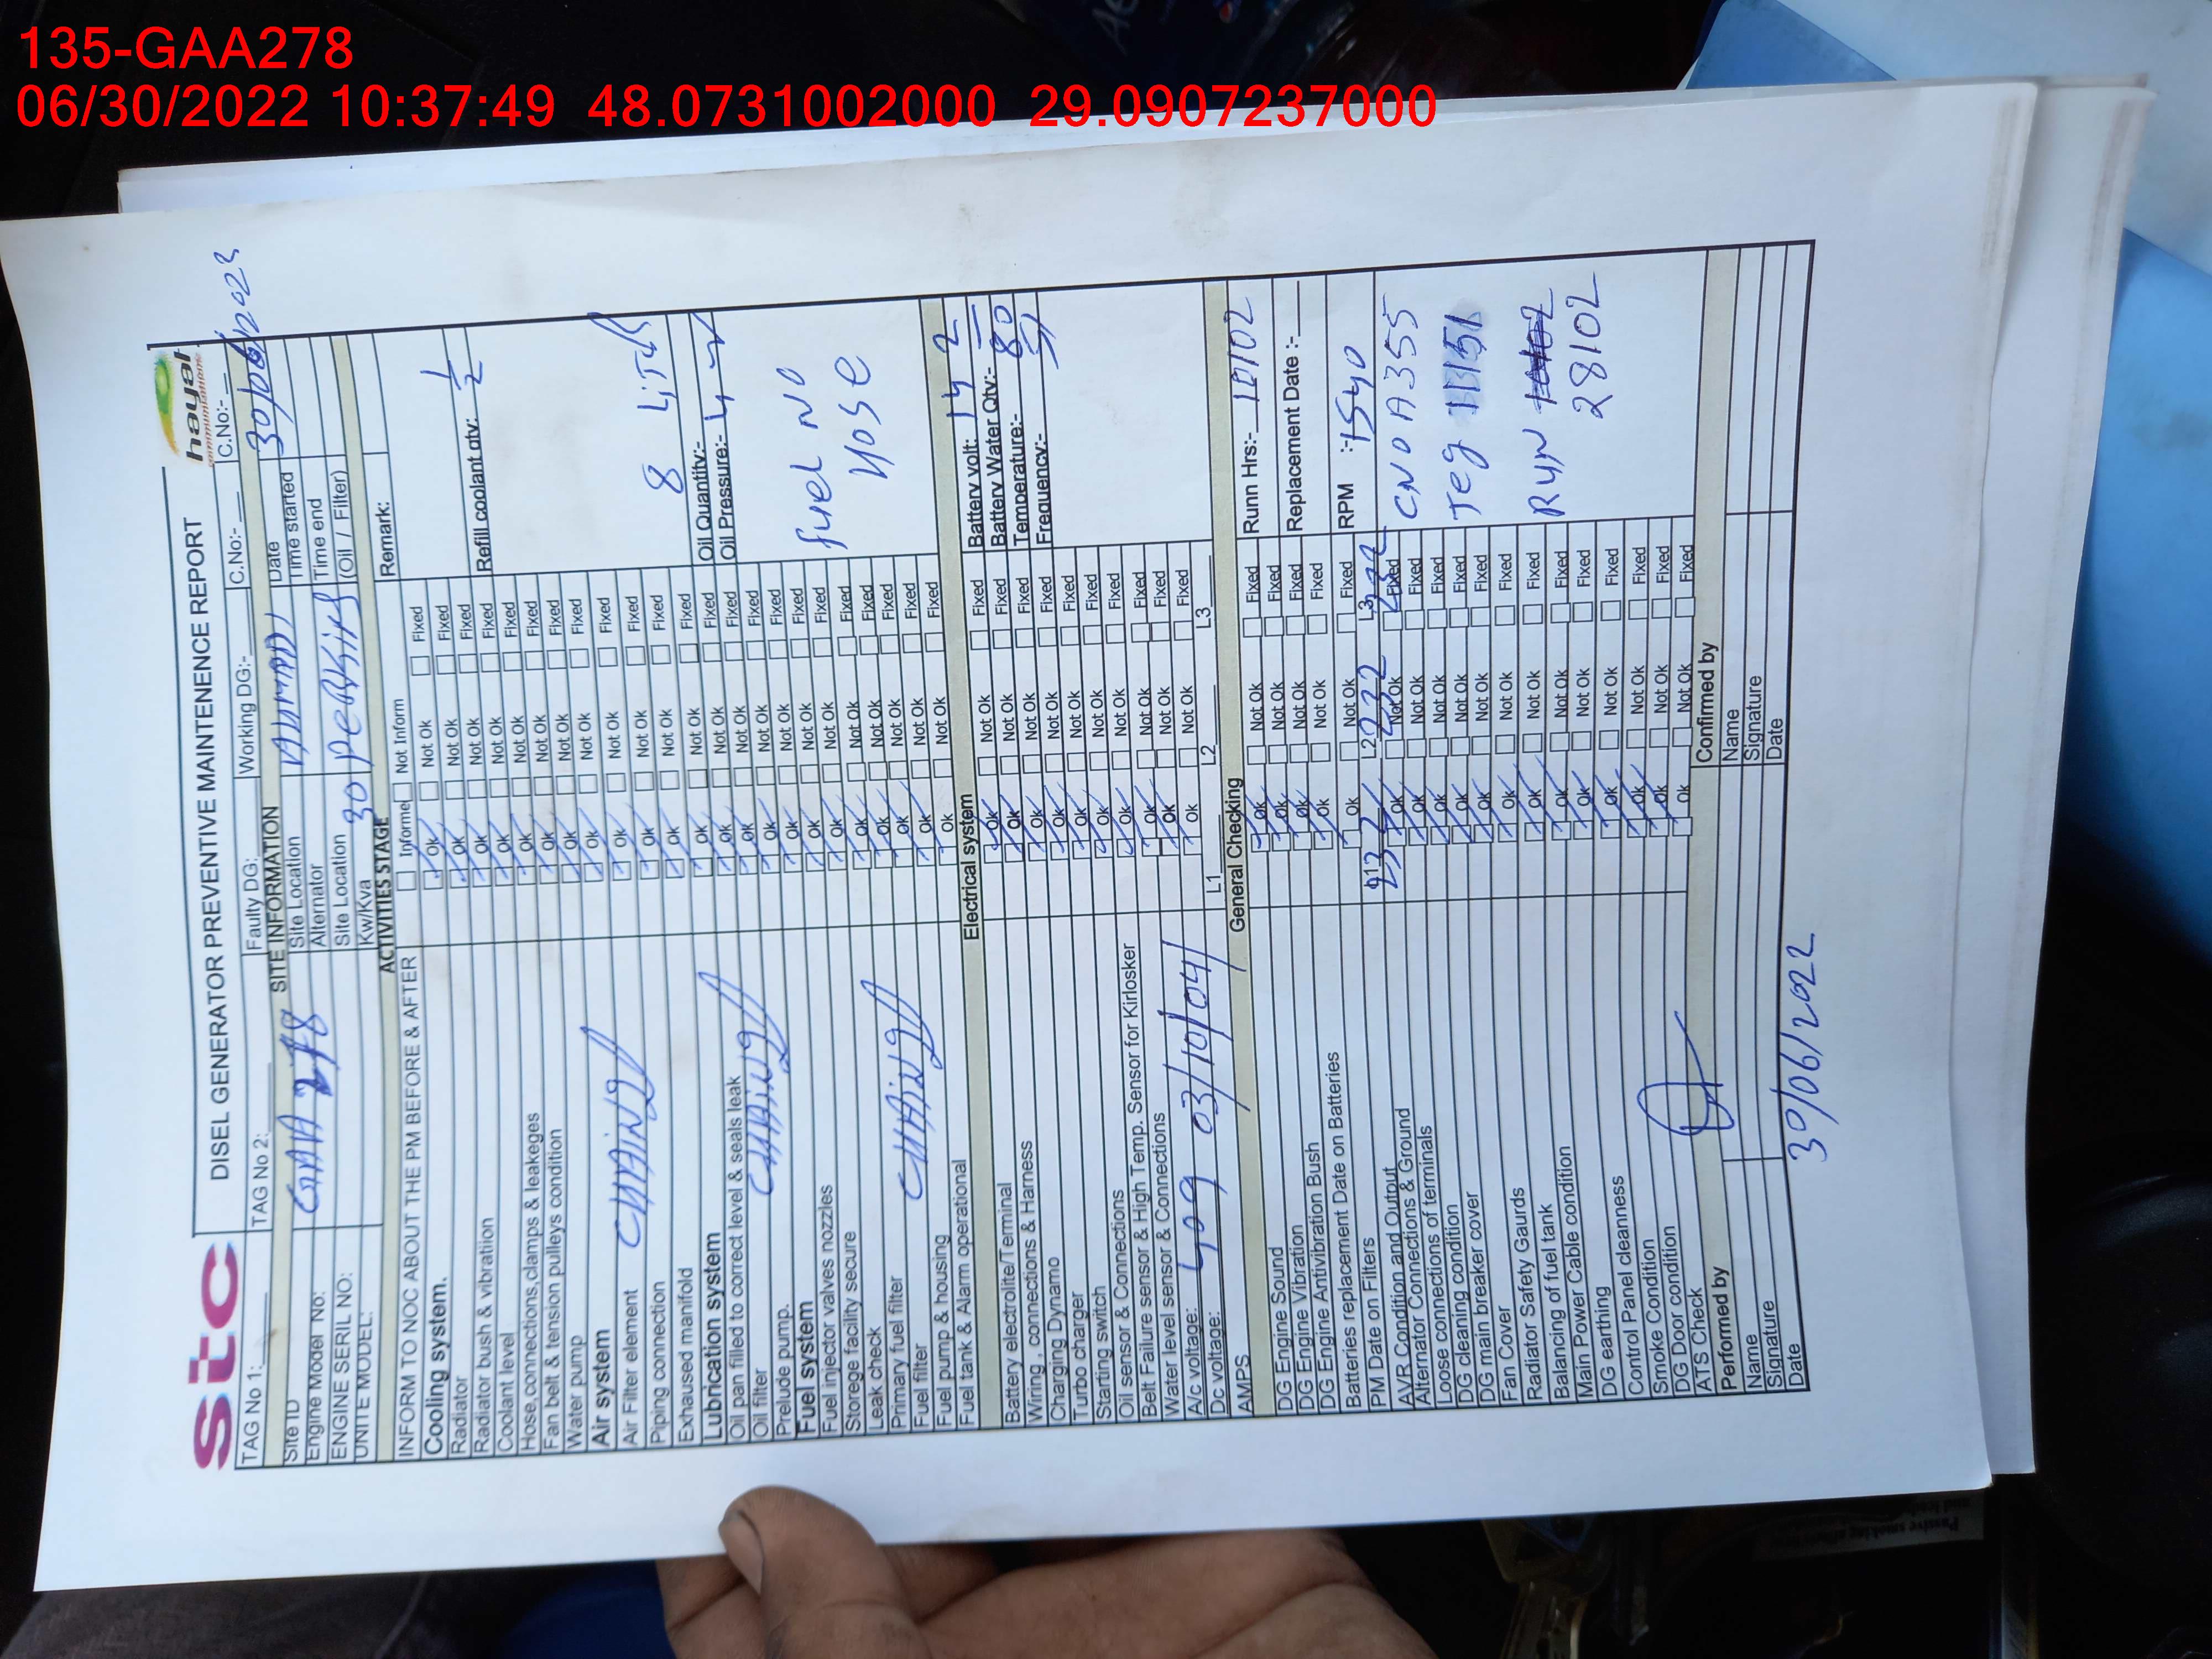 135-GAA278
06/30/2022 10:37:49 48.0731002000 29.0907237000
stc
DISEL GENERATOR PREVENTIVE MAINTENENCE REPORT
hayat
communications
TAG No 1:
TAG No 2:
Faulty DG:
Working DG:-
C.No:-
C.No:-
SITE INFORMATION
Site ID GAA 278
Site Location AHMADI
Date 30/06/2022
Engine Model No:
Alternator
Time started
ENGINE SERIL NO:
Site Location
Time end
UNITE MODEL:
Kw/Kva 30
(Oil / Filter)
ACTIVITIES STAGE
INFORM TO NOC ABOUT THE PM BEFORE & AFTER Informe Not Inform Remark:
Cooling system. Ok Not Ok Fixed
Radiator Ok Not Ok Fixed 1/2
Radiator bush & vibratiion Ok Not Ok Fixed Refill coolant qty:
Coolant level Ok Not Ok Fixed
Hose,connections,clamps & leakeges Ok Not Ok Fixed
Fan belt & tension pulleys condition Ok Not Ok Fixed
Water pump Ok Not Ok Fixed
Air system Ok Not Ok Fixed
Air Filter element Ok Not Ok Fixed
Piping connection Ok Not Ok Fixed
Exhaused manifold Ok Not Ok Fixed 8
Lubrication system Ok Not Ok Fixed Oil Quantity:-
Oil pan filled to correct level & seals leak Ok Not Ok Fixed Oil Pressure:-
Oil filter Ok Not Ok Fixed
Prelude pump. Ok Not Ok Fixed
Fuel system Ok Not Ok Fixed
Fuel injector valves nozzles Ok Not Ok Fixed Fuel NO
Storege facility secure Ok Not Ok Fixed HOSE
Leak check Ok Not Ok Fixed
Primary fuel filter Ok Not Ok Fixed
Fuel filter Ok Not Ok Fixed
Fuel pump & housing Ok Not Ok Fixed
Fuel tank & Alarm operational
Electrical system
Battery volt: 14 2
Battery electrolite/Terminal Ok Not Ok Fixed Battery Water Qty:-
Wiring , connections & Harness Ok Not Ok Fixed Temperature:- 80
Charging Dynamo Ok Not Ok Fixed Frequency:- 51
Turbo charger Ok Not Ok Fixed
Starting switch Ok Not Ok Fixed
Oil sensor & Connections Ok Not Ok Fixed
Belt Failure sensor & High Temp. Sensor for Kirlosker Ok Not Ok Fixed
Water level sensor & Connections Ok Not Ok Fixed
A/c voltage: 409 Ok Not Ok Fixed
Dc voltage: L1 L2 L3
AMPS 03/10/04/
General Checking
Runn Hrs:- 10102
DG Engine Sound Ok Not Ok Fixed
DG Engine Vibration Ok Not Ok Fixed Replacement Date :-
DG Engine Antivibration Bush Ok Not Ok Fixed
Batteries replacement Date on Batteries Ok Not Ok Fixed RPM :-1540
PM Date on Filters L2 232 L3 232
AVR Condition and Output Ok Not Ok Fixed CNO A355
Alternator Connections & Ground Ok Not Ok Fixed
Loose connections of terminals Ok Not Ok Fixed
DG cleaning condition Ok Not Ok Fixed Teg
DG main breaker cover Ok Not Ok Fixed
Fan Cover Ok Not Ok Fixed
Radiator Safety Gaurds Ok Not Ok Fixed RUN
Balancing of fuel tank Ok Not Ok Fixed
Main Power Cable condition Ok Not Ok Fixed 28102
DG earthing Ok Not Ok Fixed
Control Panel cleanness Ok Not Ok Fixed
Smoke Condition Ok Not Ok Fixed
DG Door condition Ok Not Ok Fixed
ATS Check
Performed by Confirmed by
Name Name
Signature Signature
Date 30/06/2022 Date